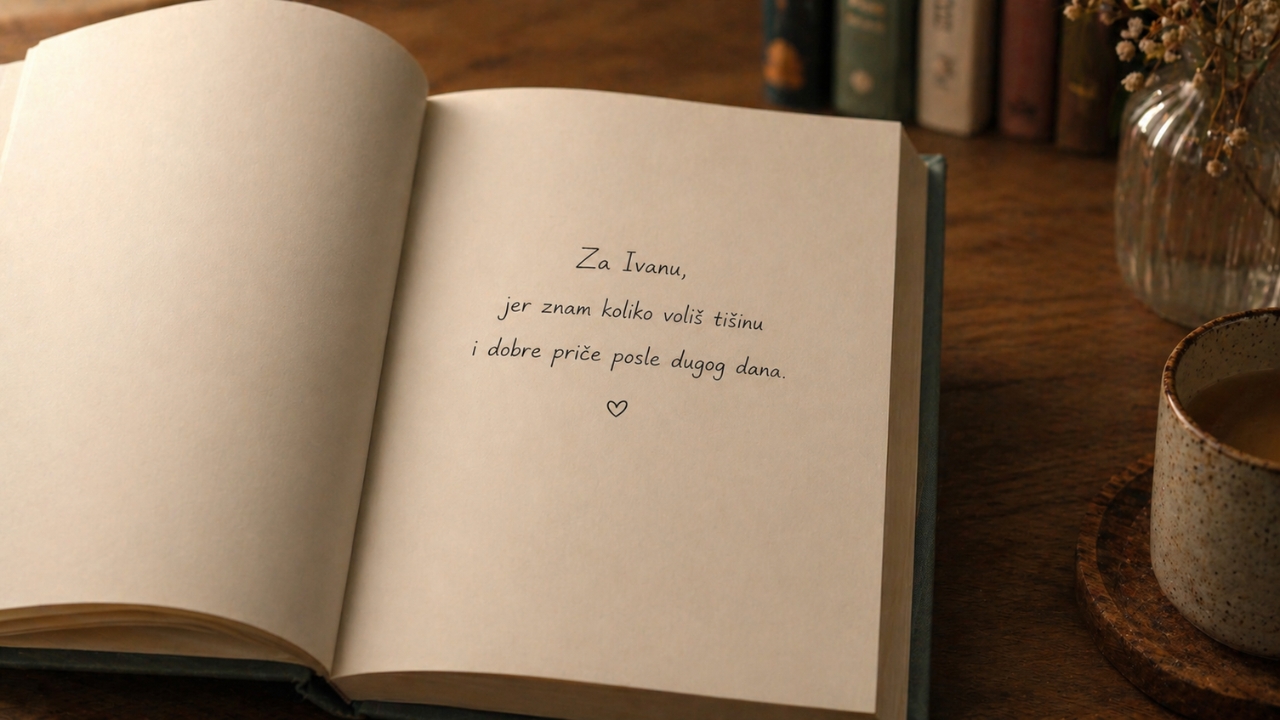 Za Ivanu,
jer znam koliko voliš tišinu
i dobre priče posle dugog dana.